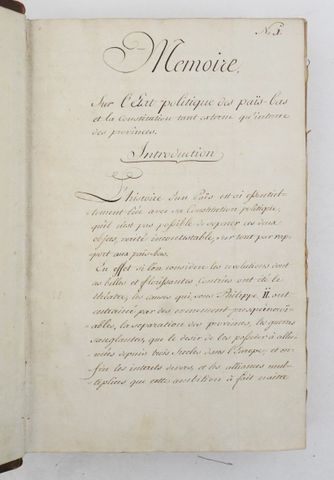 N. 1.
Memoire.
Sur l'Etat politique des païs-bas
et la Constitution tant externe qu'interne
des provinces.
Introduction
L'histoire d'un Païs est si essentiel-
lement liée avec sa Constitution politique,
qu'il n'est pas possible de separer ces deux
objets, verité incontestable, sur tout par rap-
port aux païs-bas.
En effet si l'on considere les revolutions dont
ces belles et florissantes Contrées ont été le
théatre, les causes qui, sous Philippe II. ont
entrainé par des evenemens presqu'incroi-
ables, la separation des provinces, les guerres
sanglantes, que le desir de les posseder a allu-
mées depuis deux siecles dans l'Europe, et en-
fin les interets divers, et les alliances mul-
tipliées que cette ambition a fait naitre